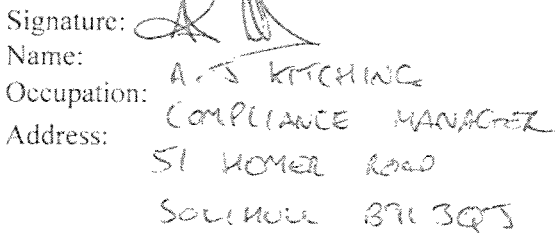 Signature:
Name: A.J KITCHING
Occupation: COMPLIANCE MANAGER
Address: 51 HOMER ROAD
SOLIHULL B91 3QJ